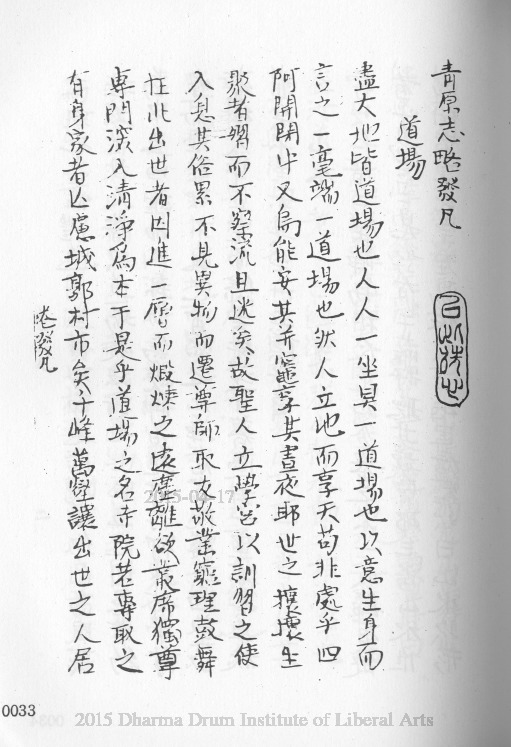 青原志略發凡
道場
盡大地皆道場也人人一坐具一道場也以意生身而
言之一毫端一道場也然人立地而享天苟非處乎四
阿開閉中又烏能安其井竈享其晝夜耶世之攘攘生
聚者習而不察流且迷矣故聖人立學宮以訓習之使
入息其俗累不見異物而遷尊師取友敬業窮理鼓舞
在此出世者因進一層而煅煉之遠塵離欲叢席獨尊
專門深入清淨為本于是乎道場之名寺院若專取之
有身家者以慮城郭村市矣千峰萬壑讓出世之人居
發凡
2015-04-17
0033
2015 Dharma Drum Institute of Liberal Arts